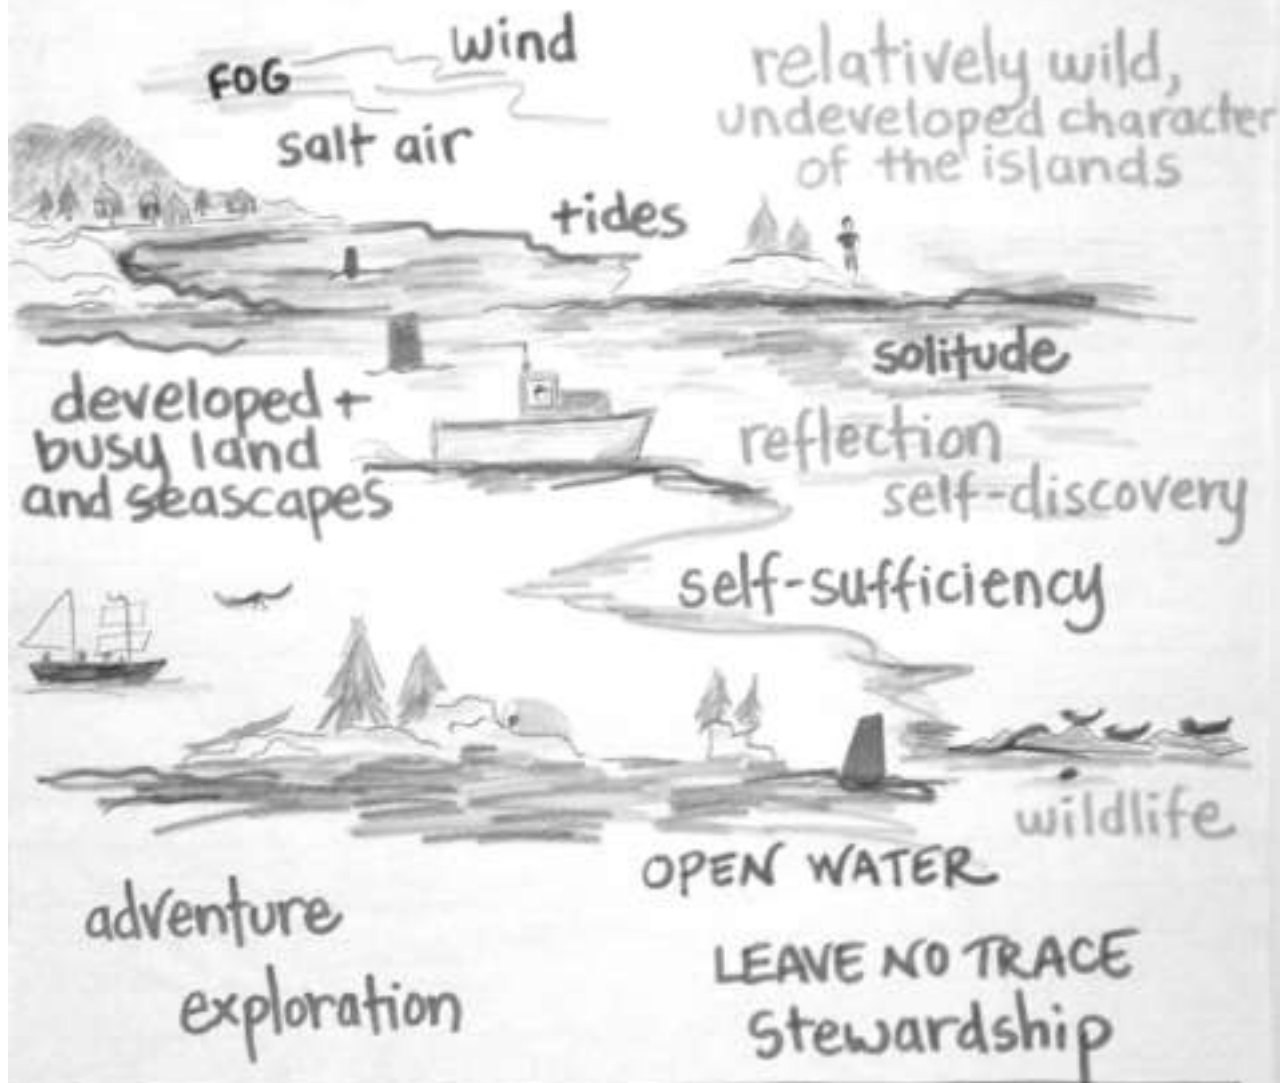 wind
FOG
salt air
relatively wild,
undeveloped character
of the islands
tides
solitude
developed +
busy land
and seascapes
reflection
self-discovery
self-sufficiency
wildlife
OPEN WATER
adventure
exploration
LEAVE NO TRACE
Stewardship